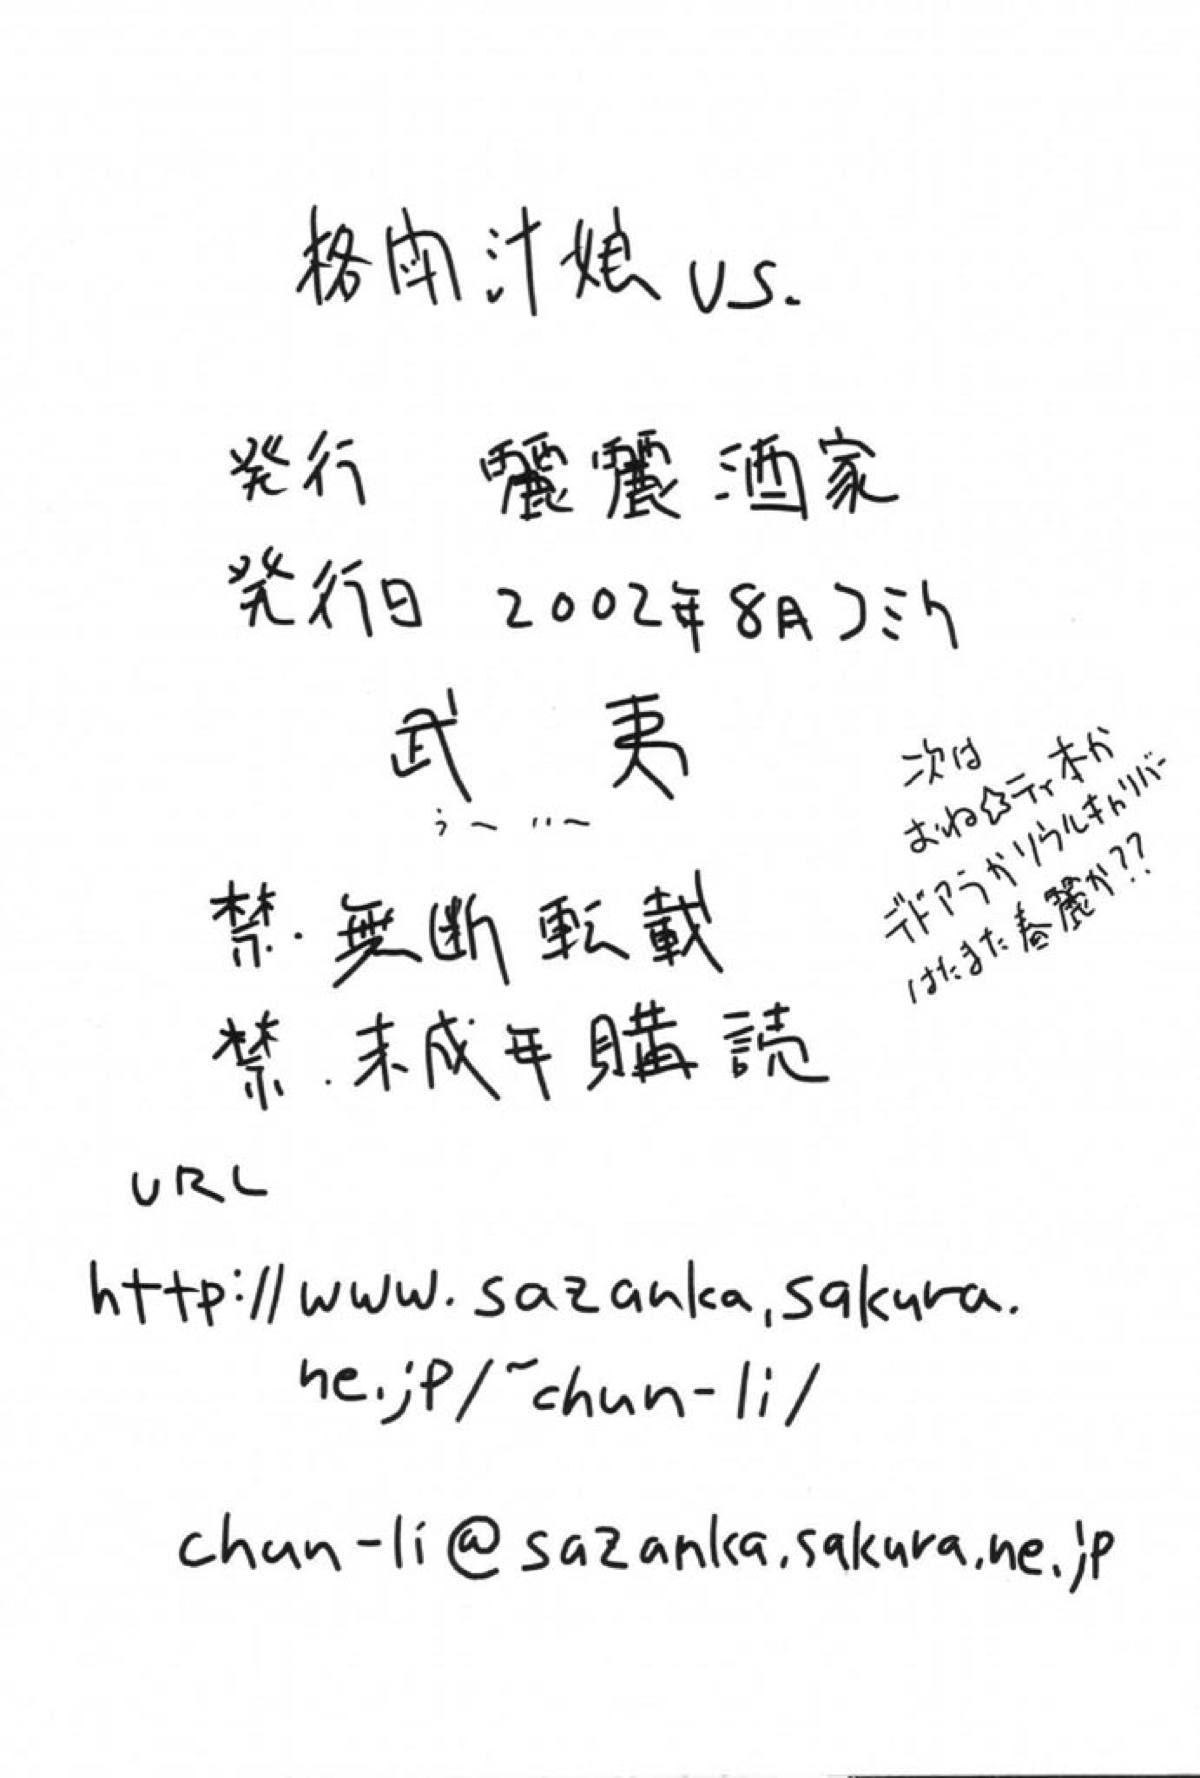 格闘汁娘 vs.
発行 麗麗酒家
発行日 2002年8月コミケ
武 夷
うー いー
次は
おね☆ティ本か
デドアラかソウルキャリバー
はたまた春麗か??
禁・無断転載
禁・未成年購読
URL
http://www.sazanka.sakura.
ne.jp/~chun-li/
chun-li@sazanka.sakura.ne.jp